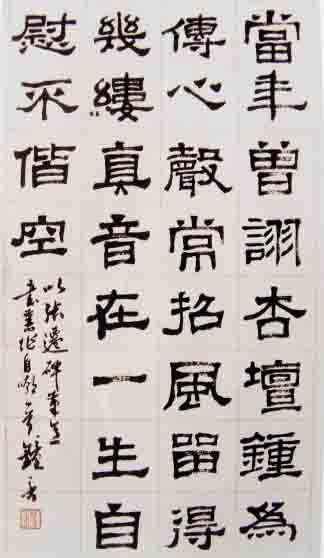 當年曾詡杏壇鍾為
傳心聲常招風留得
幾縷真音在一生自
慰不偕空
以張遷碑筆意
書舊作自嘲